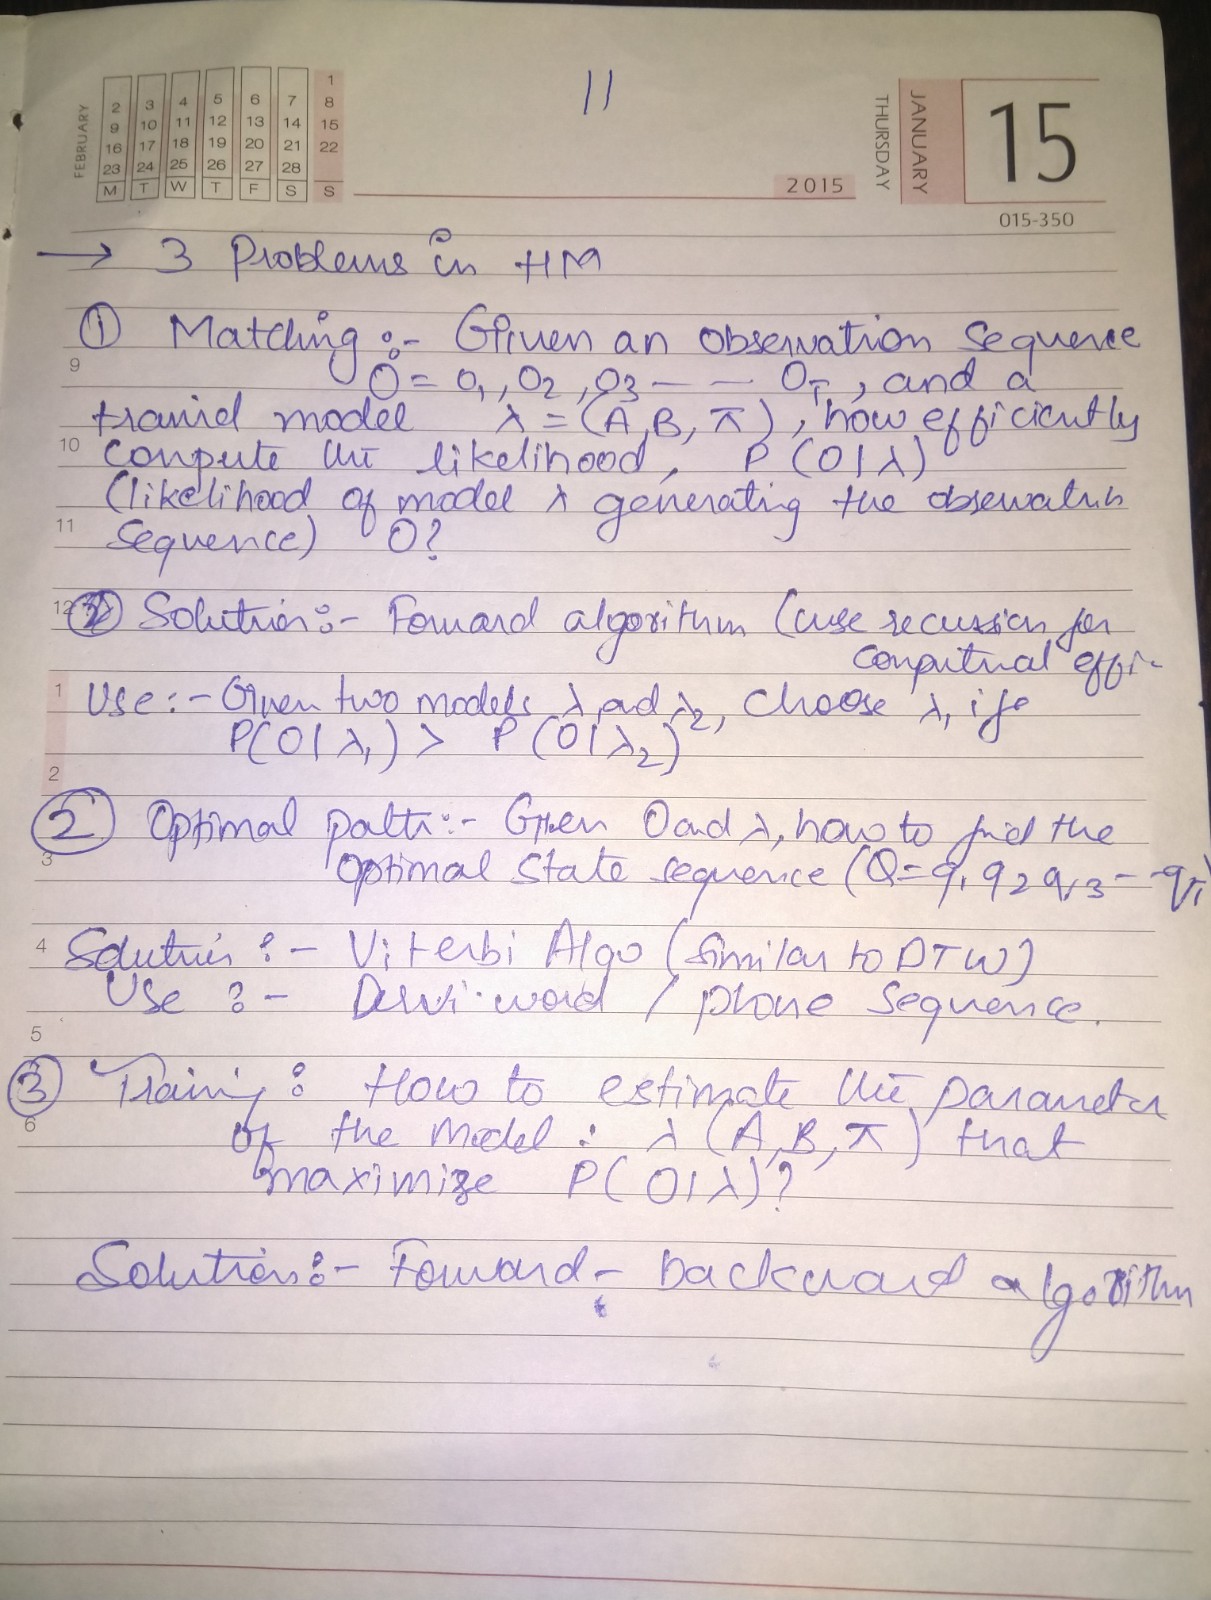 11
FEBRUARY
1
2 3 4 5 6 7 8
9 10 11 12 13 14 15
16 17 18 19 20 21 22
23 24 25 26 27 28
M T W T F S S
2015
THURSDAY
JANUARY
15
015-350
→ 3 Problems in HM
① Matching :- Given an observation sequence
9
O = O1, O2, O3 — — OT, and a
traind model λ = (A, B, π), how efficiently
10 compute the likelihood, P(O|λ)
(likelihood of model λ generating the observatin
11 sequence) O?
12 Solution :- Forward algorithm (use recussion for
computnal effi-
1 Use :- Given two models λ, ad λ2, choose λ, if
P(O|λ1) > P(O|λ2)
2
② Optimal path :- Given O ad λ, how to find the
3 optimal state sequence (Q = q1 q2 q3 - - qT)
4 Solution :- Viterbi Algo (similar to DTW)
Use :- word / phone sequence.
5
③ Training : How to estimate the parameter
6 of the model : λ (A, B, π) that
maximize P(O|λ)?
Solution :- Forward - backward algorithm